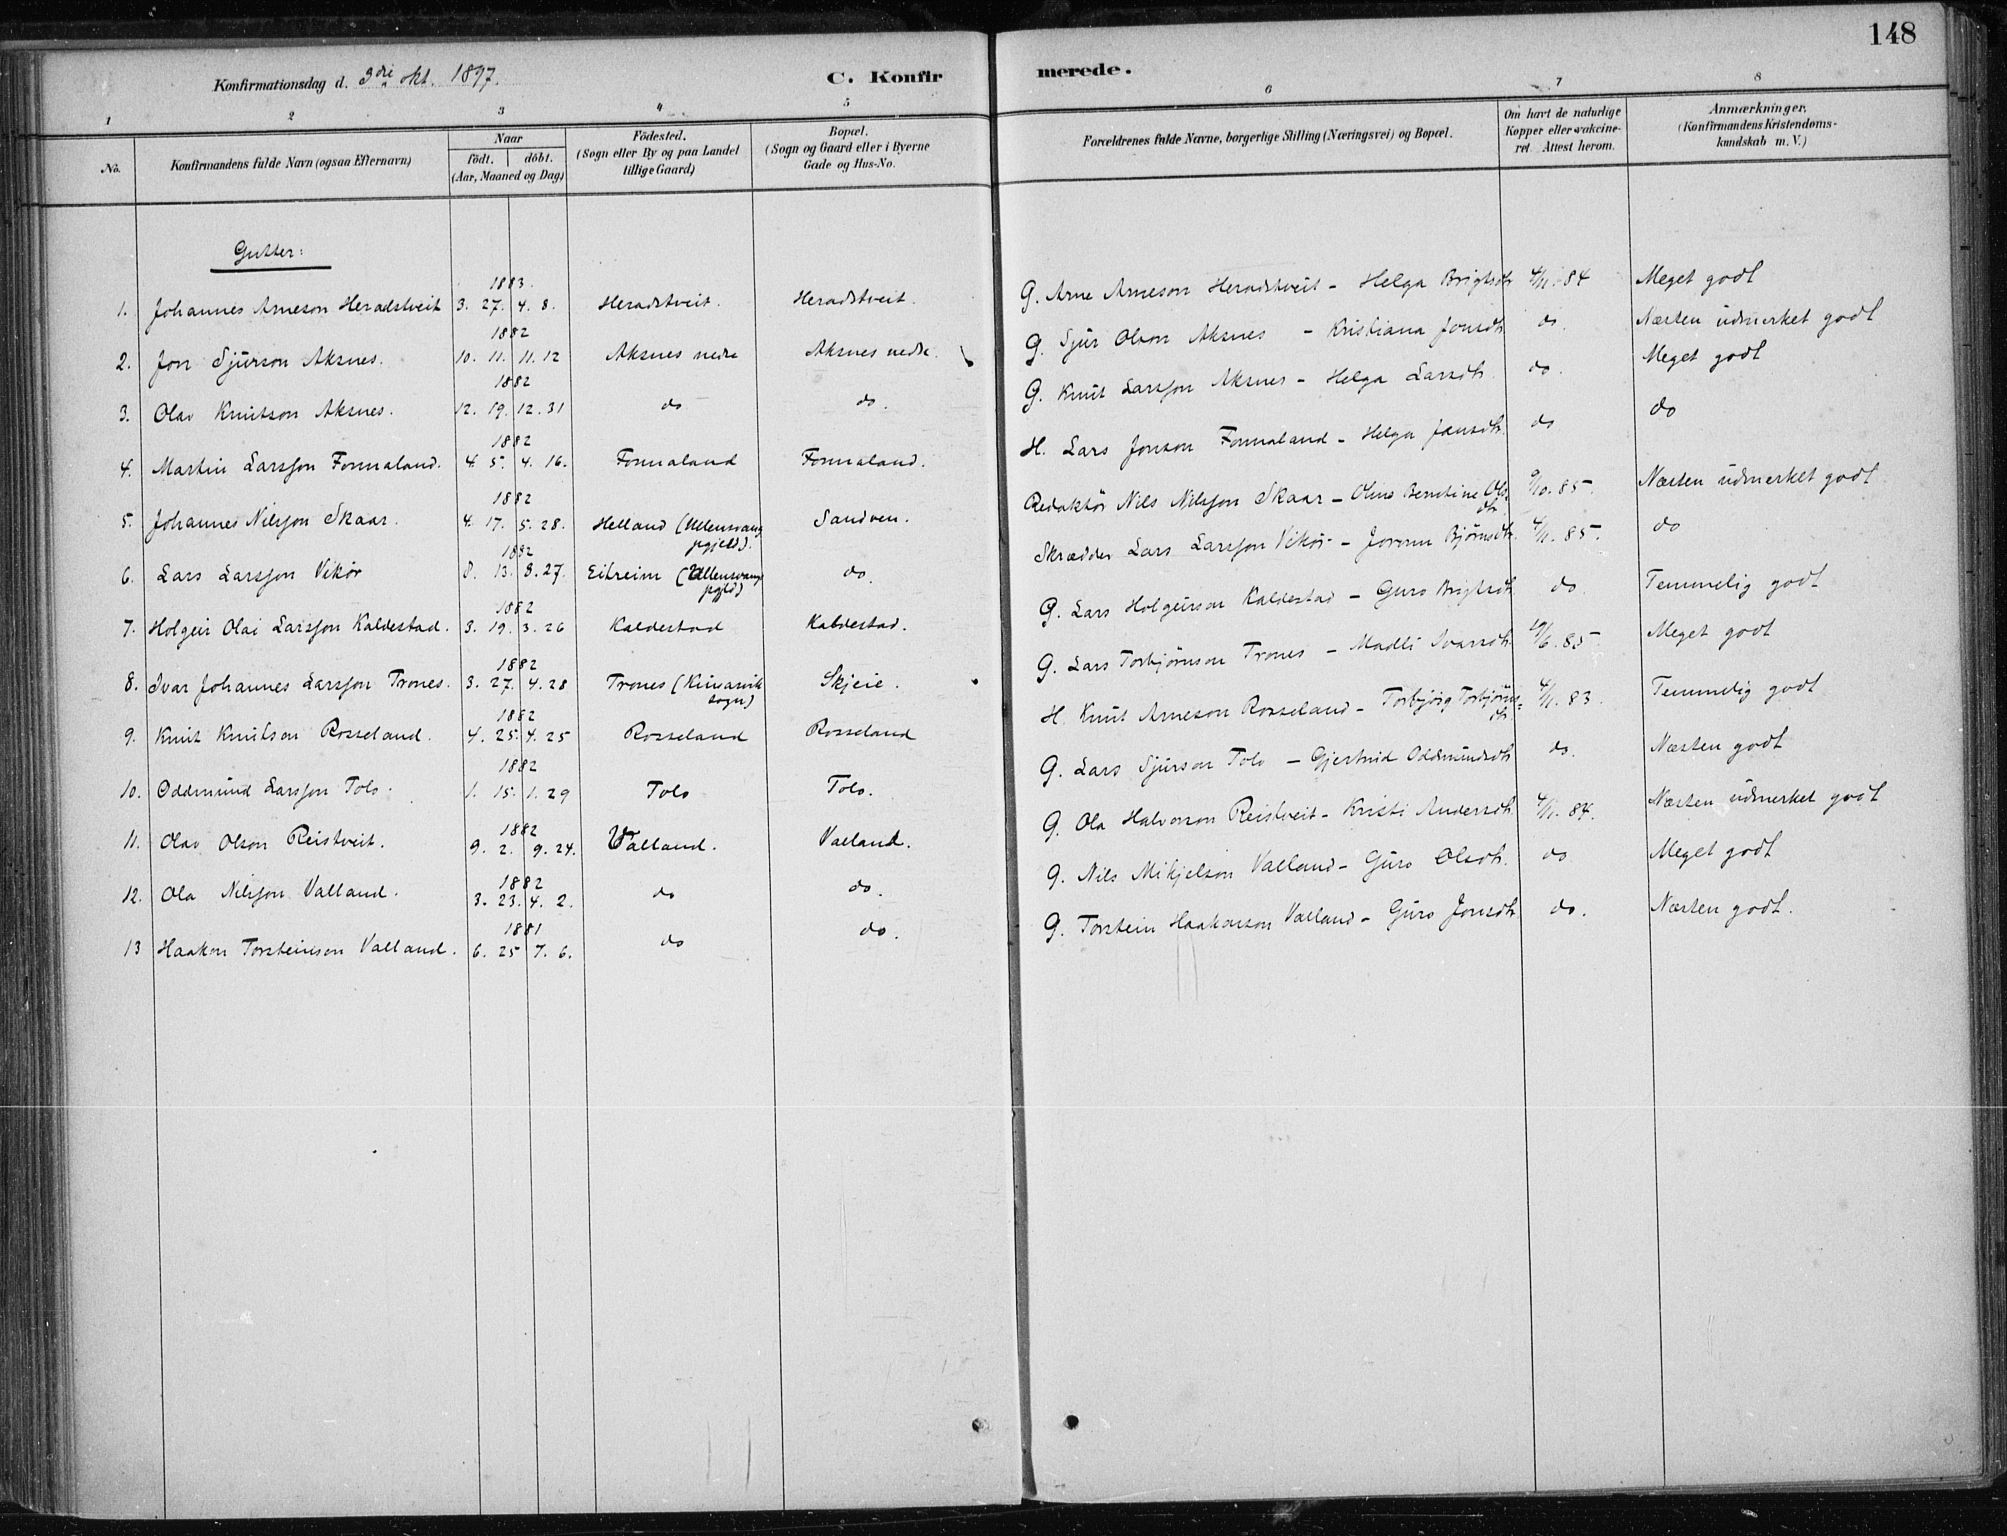 148
Konfirmationsdag d. 3die okt. 1897.
C. Konfirmerede.
1 2 3 4 5 6 7 8
No.
Konfirmandens fulde Navn (ogsaa Efternavn)
Naar
födt. döbt.
(Aar, Maaned og Dag)
Födested.
(Sogn eller By og paa Landet
tillige Gaard)
Bopæl.
(Sogn og Gaard eller i Byerne
Gade og Hus-No.
Forældrenes fulde Navne, borgerlige Stilling (Næringsvei) og Bopæl.
Om havt de naturlige
Kopper eller vakcine-
ret. Attest herom.
Anmærkninger.
(Konfirmandens Kristendoms-
kundskab m. V.)
Gutter:
1883.
1. Johannes Arneson Heradstveit 3. 27. 4. 8. Heradstveit. Heradstveit. G. Arne Arneson Heradstveit - Helga Brigtsdtr 4/11. 84 Meget godt
1882
2. Jon Sjurson Aksnes. 10. 11. 11. 12 Aksnes nedre Aksnes nedre. G. Sjur Olson Aksnes - Kristiana Jonsdtr do. Næsten udmerket godt
1882
3. Olav Knutson Aksnes. 12. 19. 12. 31 do do. G. Knut Larsson Aksnes - Helga Larsdtr. do. Meget godt
1882
4. Martin Larsson Fonnaland. 4. 5. 4. 16. Fonnaland Fonnaland. H. Lars Jonson Fonnaland - Helga Jansdtr. do do
1882
5. Johannes Nilsson Skaar. 4. 17. 5. 28. Helland (Ullensvang pgjeld). Sandven. Redaktör Nils Nilsson Skaar - Oline Berntine Olsdtr 9/10. 85. Næsten udmerket godt
1882
6. Lars Larsson Vikör 8. 13. 8. 27. Eitreim (Ullensvang pgjld) do. Skrædder Lars Larsson Vikör - Jorunn Björnsdtr. 4/11. 85. do
1882
7. Holgeir Olai Larsson Kaldestad. 3. 19. 3. 26 Kaldestad Kaldestad. G. Lars Holgeirson Kaldestad - Guro Brigtsdtr do. Temmelig godt
1882
8. Ivar Johannes Larsson Trones. 3. 27. 4. 28 Trones (Kinsarvik sogn) Skjeie. G. Lars Torbjörnson Trones - Madli Ivarsdtr 19/6. 85 Meget godt
1882
9. Knut Knutson Rosseland. 4. 25. 4. 25 Rosseland Rosseland H. Knut Arneson Rosseland - Torbjörg Torbjörnsdtr. 4/11. 83. Temmelig godt
1882
10. Oddmund Larsson Tolo. 1. 15. 1. 29 Tolo Tolo. G. Lars Sjurson Tolo - Gjertrud Oddmundsdtr do. Næsten godt
1882
11. Olav Olson Reistveit. 9. 2. 9. 24. Valland. Valland. G. Ola Halvorson Reistveit - Kristi Andersdtr 4/11. 84. Næsten udmerket godt
1882
12. Ola Nilsson Valland. 3. 23. 4. 2. do do. G. Nils Mikjelson Valland - Guro Olsdtr. do Meget godt
1881
13 Haakon Torsteinson Valland. 6. 25 7. 6. do do. G. Torstein Haakonson Valland - Guro Jonsdtr do. Næsten godt.